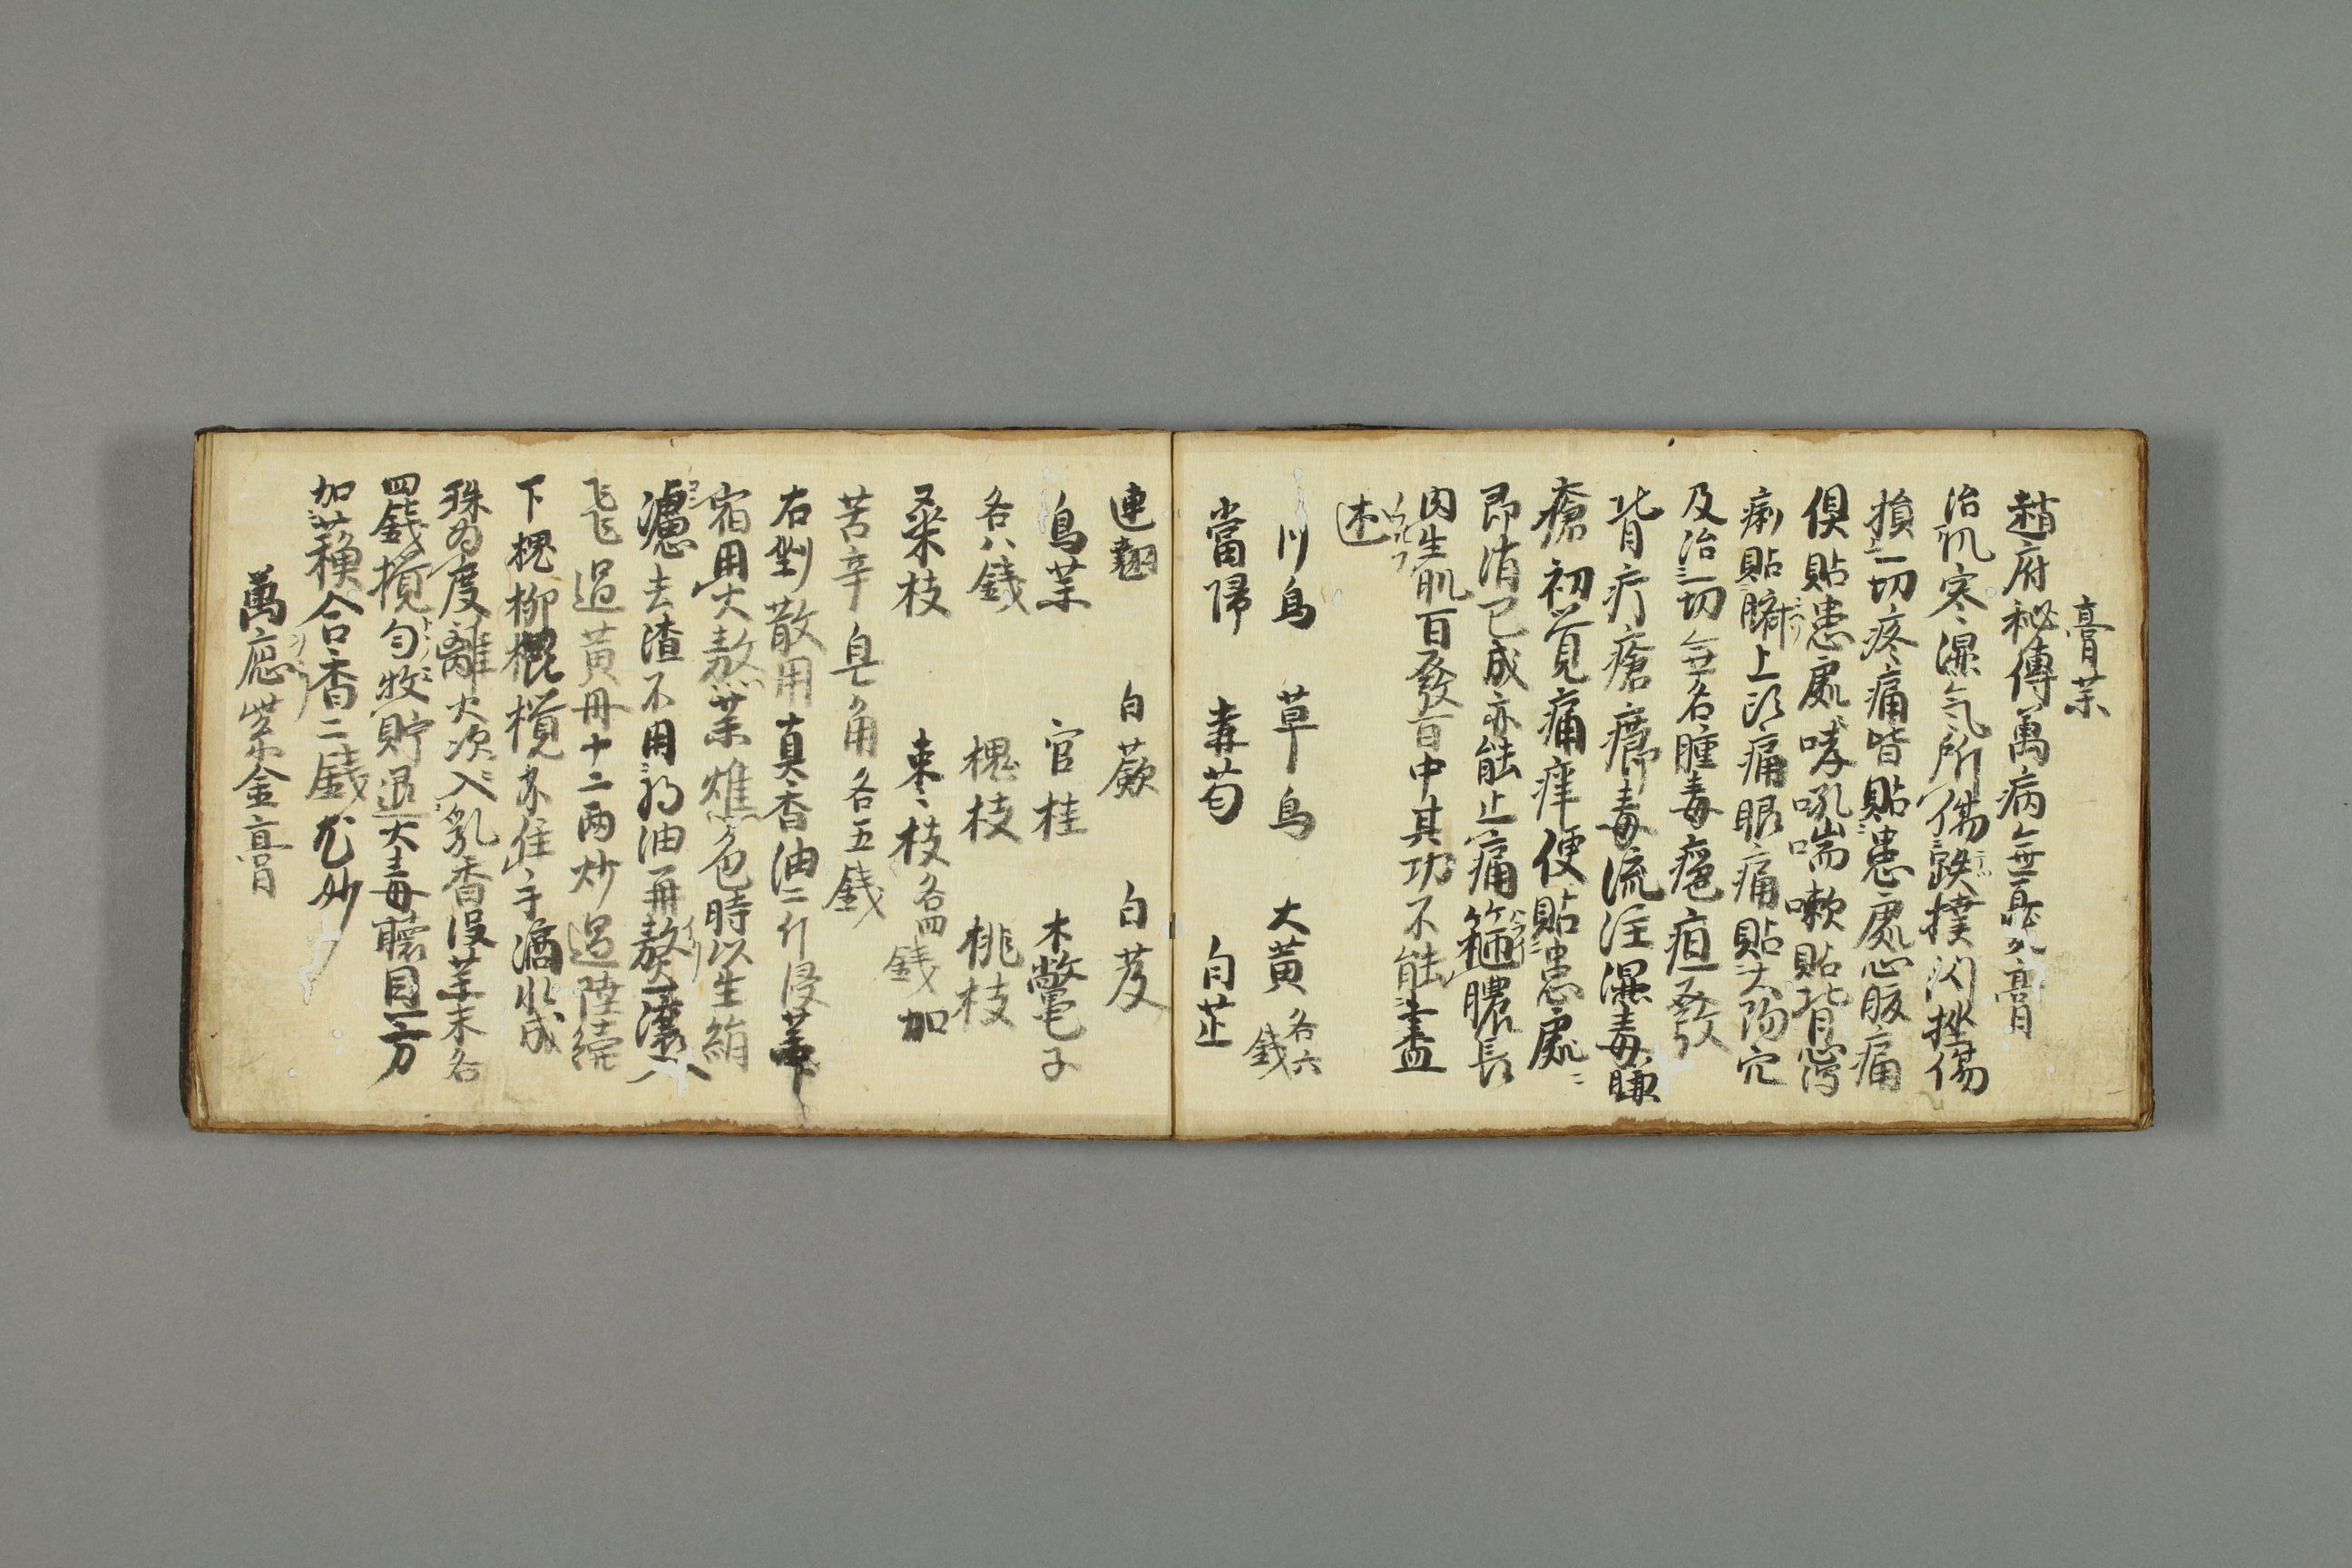 膏藥
趙府秘傳萬病無憂膏
治風寒濕気所傷跌撲閃挫傷
損一切疼痛皆貼患處心腹痛
俱貼患處哮吼喘嗽貼背心瀉
痢貼臍上頭痛眼痛貼太陽穴
及治一切無名腫毒瘡疽發
背疔瘡癤毒流注濕毒臁
瘡初覚痛痒便貼患處
即消已成亦能止痛箍膿長
肉生肌百發百中其功不能盡
述
川烏 草烏 大黃各六錢
當帰 赤芍 白芷
連翹 白蘞 白芨
烏薬 官桂 木鼈子
各八錢 槐枝 桃枝
桑枝 枣枝各四錢 加
苦辛 皂角各五錢
右剉散用真香油二斤浸薬一
宿用火熬薬燋色時以生絹
濾去渣不用将油再熬一滾入
飛過黃丹十二兩炒過陸續
下槐柳棍攪不住手滴水成
珠為度離火次入乳香没薬末各
四錢攪匀收貯退火毒聽用一方
加蘓合香二錢尤妙
萬應紫金膏